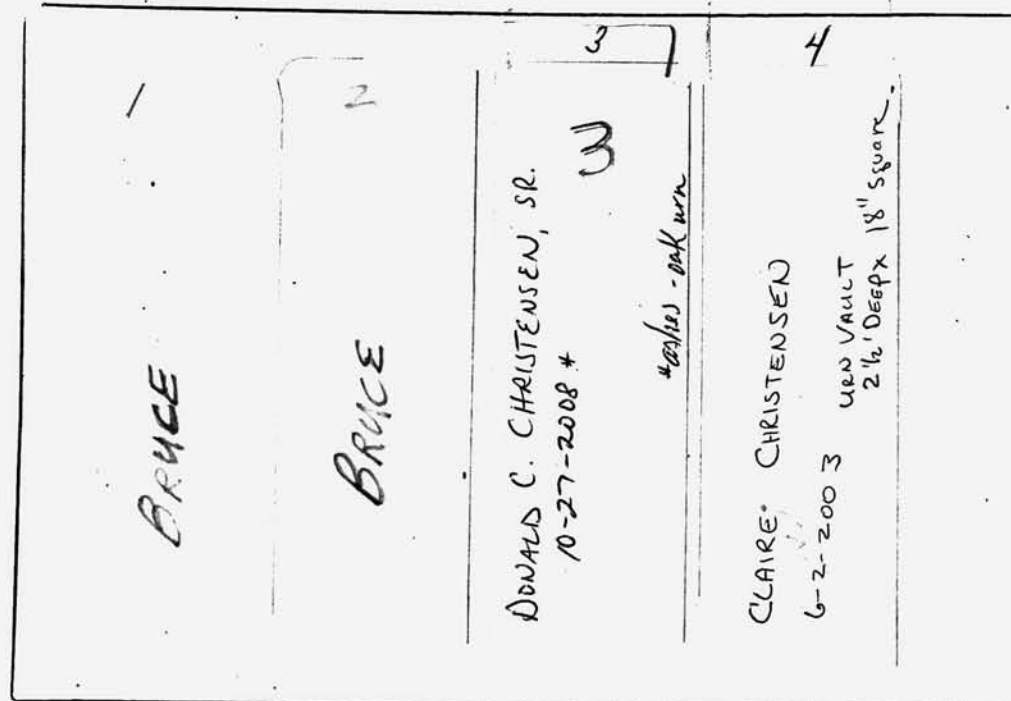 1
BRUCE
2
BRUCE
3
3
DONALD C. CHRISTENSEN, SR.
10-27-2008 *
*ashes - oak urn
4
CLAIRE CHRISTENSEN
6-2-2003
URN VAULT
2½' DEEP X 18" Square.